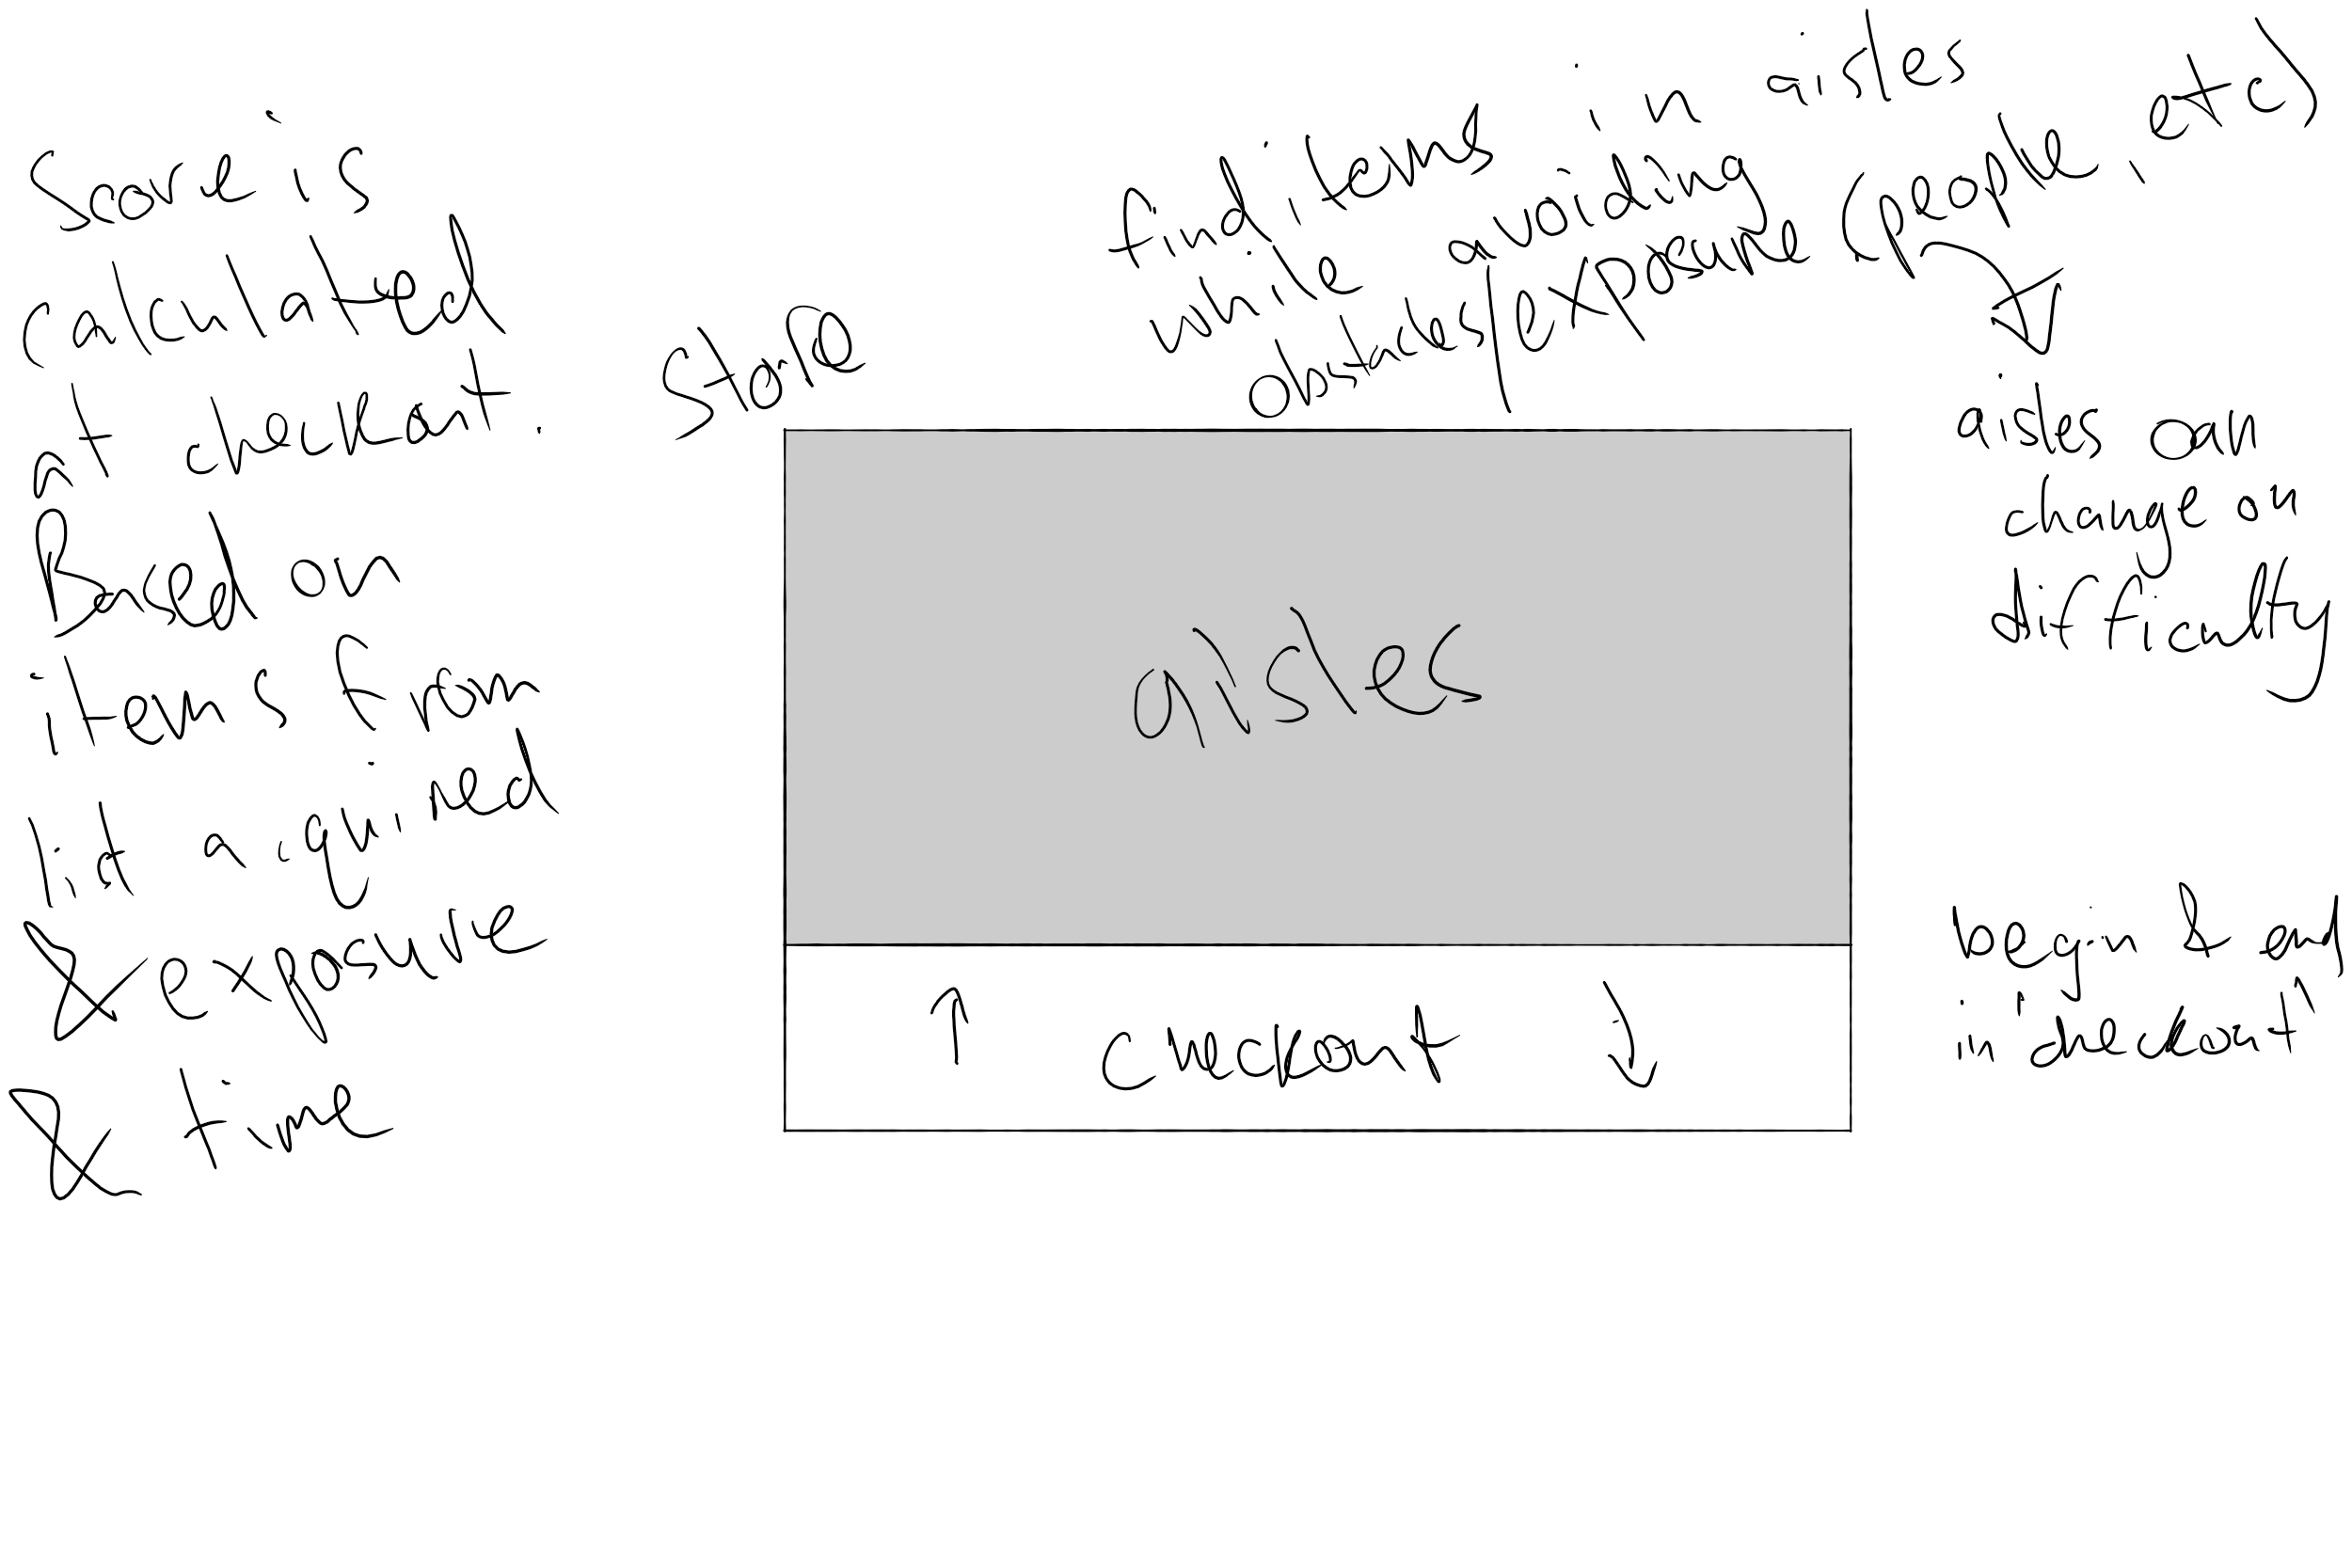 Score is
calculated
at checkout.
Based on
items from
list acquired
& exposure
& time
Store
find items in aisles
while avoiding
obstacles/exposure (people, etc)
aisles can
change on
difficulty
aisles
↑ checkout ↓
begin & end
in "checkout"